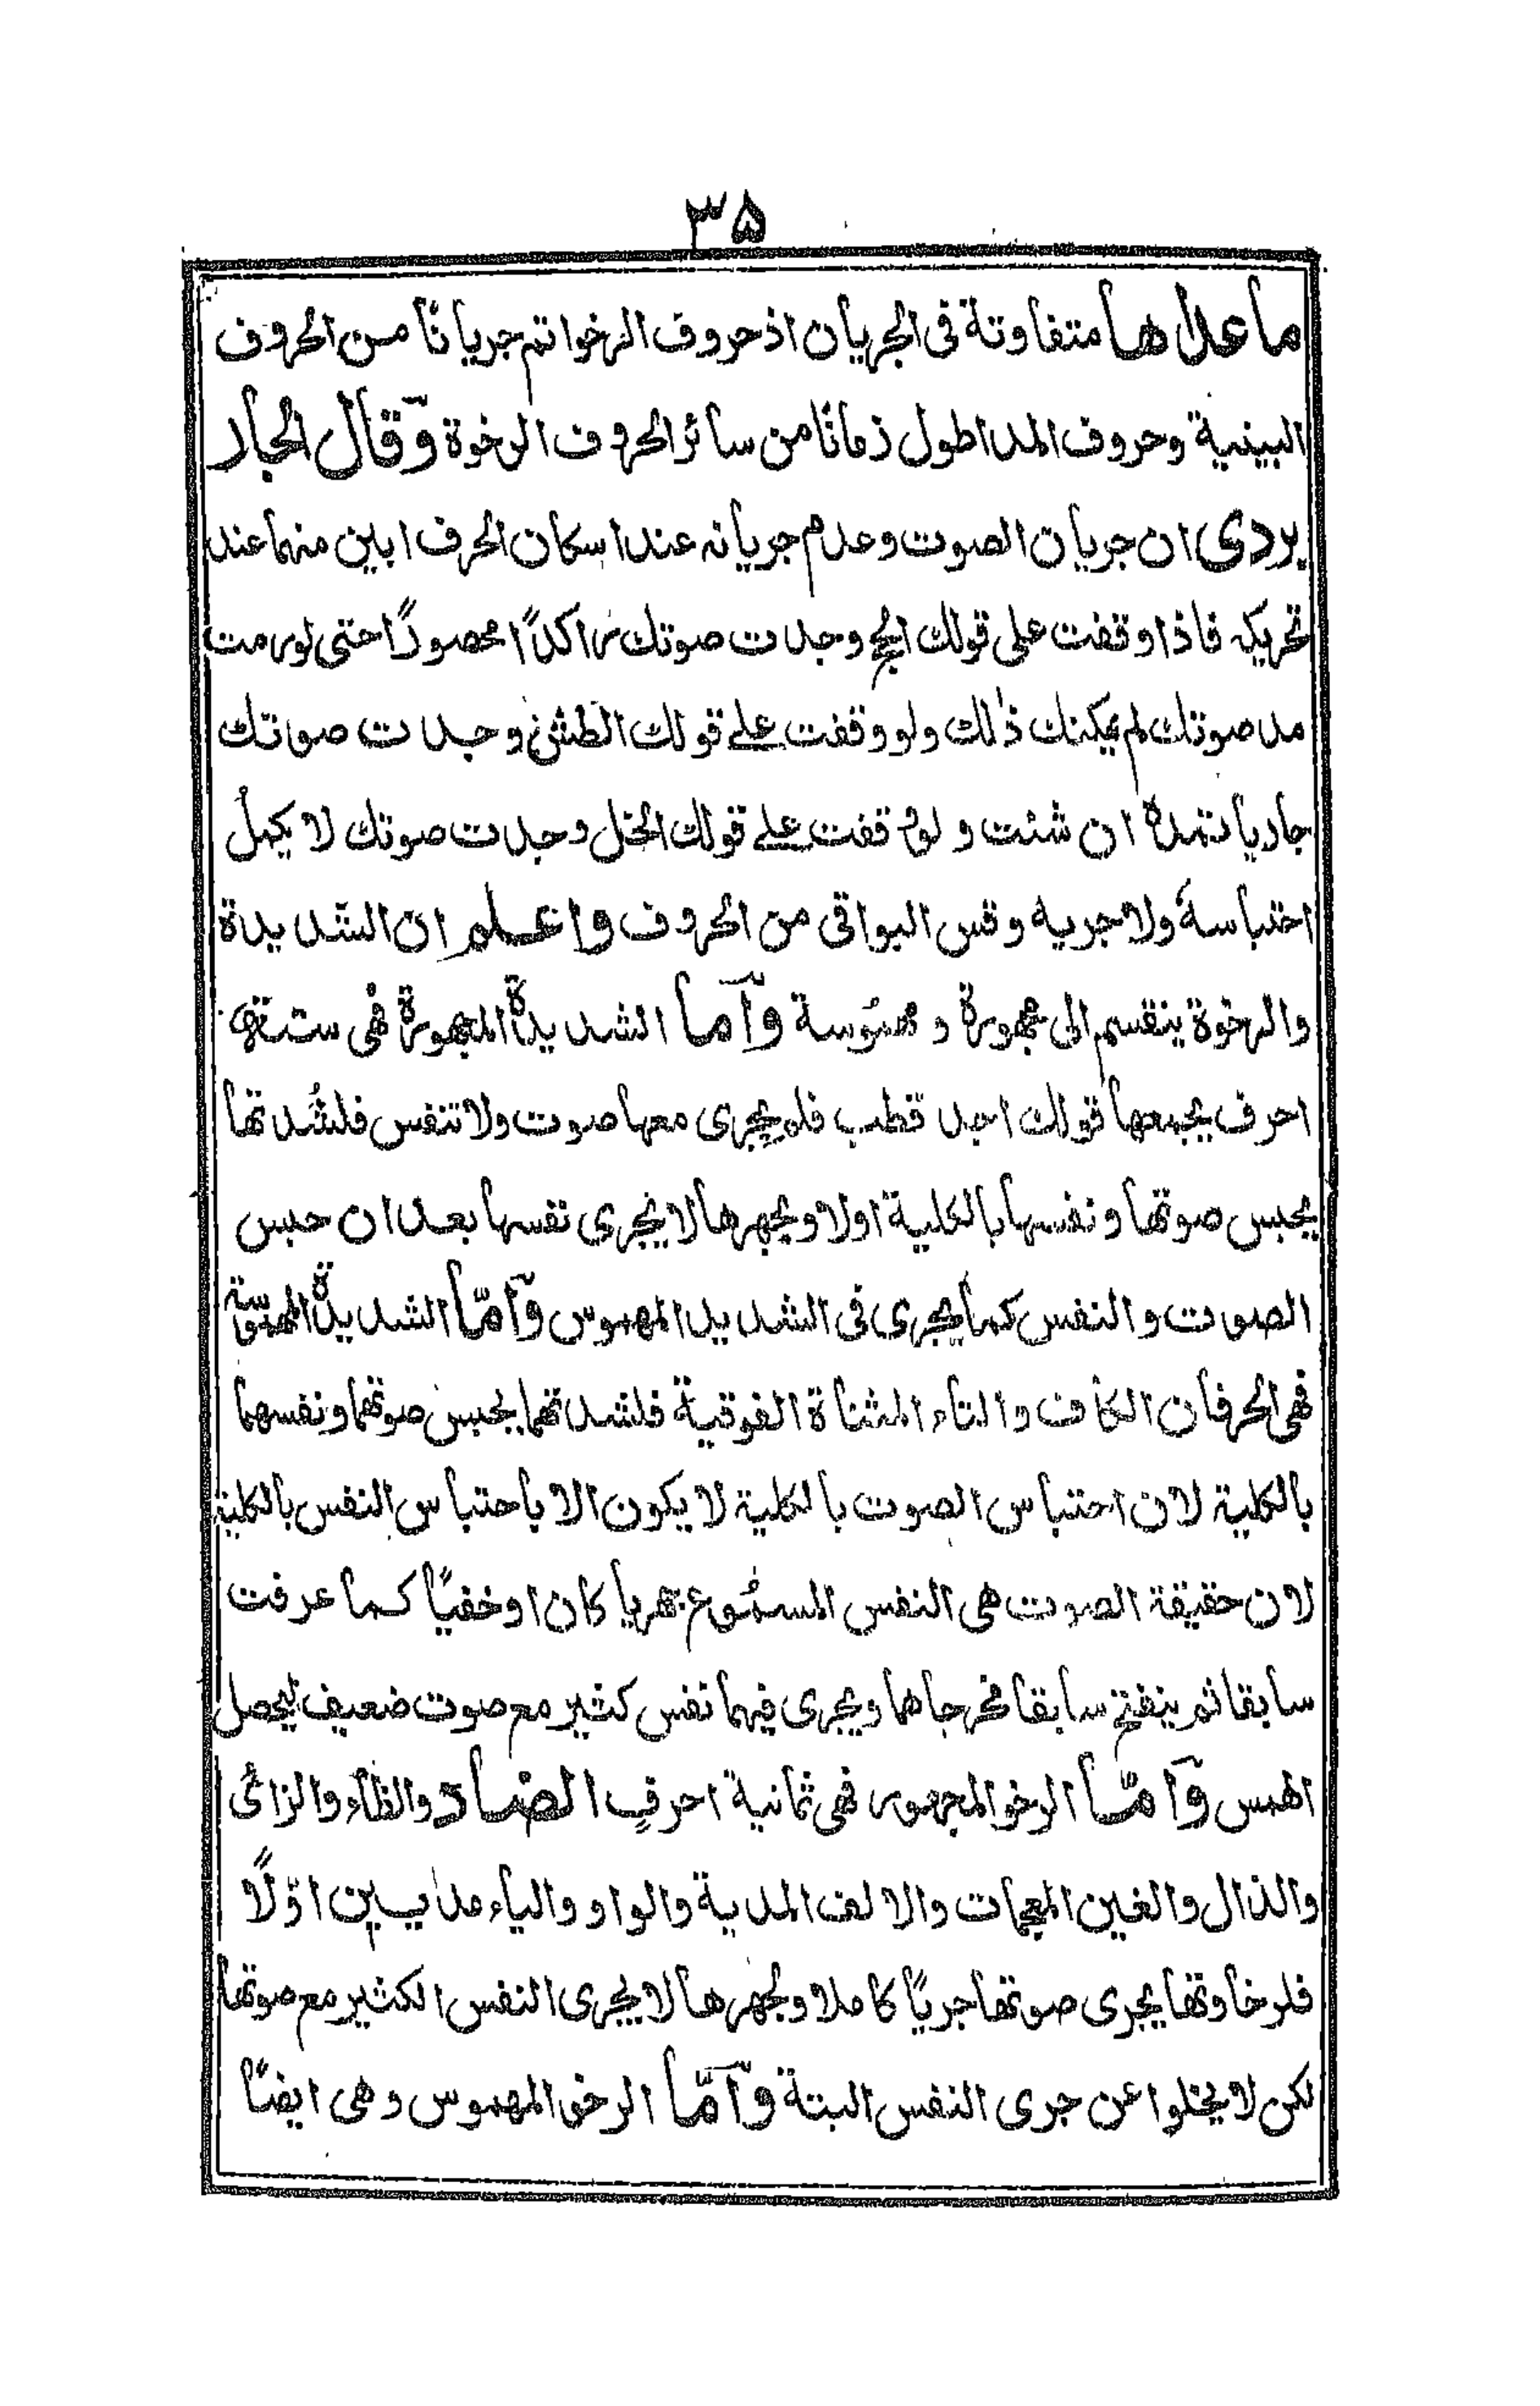 ٣٥
ما عداها متفاوتة فى الجريان اذ حروف الرخو اتم جريانًا من الحروف
البينية وحروف المد اطول زمانًا من سائر الحروف الرخوة وقال الجار
بردى ان جريان الصوت وعدم جريانه عند اسكان الحرف ابين منهما عند
تحريكه فاذا وقفت على قولك الحج وجدت صوتك راكدًا محصورًا حتى لو رمت
مد صوتك لم يمكنك ذٰلك ولو وقفت علے قولك الطش وجدت صوتك
جاريا تمده ان شئت ولو وقفت علے قولك الخل وجدت صوتك لا يكمل
احتباسه ولا جريه وقس البواقى من الحروف واعلم ان الشديدة
والرخوة ينقسم الى مجهورة و مهموسة وآما الشديدة المجهورة فهى ستة
احرف يجمعها قولك اجد قطب فلم يجرى معها صوت ولا تنفس فلشدتها
يحبس صوتها ونفسها بالكلية اولا وبجهرها لا يجرى نفسها بعد ان حبس
الصوت والنفس كما يجرى فى الشديد المهموس وآمّا الشديدة المهموسة
فهى الحرفان الكاف والتاء المثناة الفوقية فلشدتهما يحبس صوتهما ونفسهما
بالكلية لان احتباس الصوت بالكلية لا يكون الا باحتباس النفس بالكلية
لان حقيقة الصوت هى النفس المسموع جهريا كان او خفيًا كما عرفت
سابقا ثم ينفتح سابقا مخرجاهما ويجرى فيهما نفس كثير مع صوت ضعيف ليحصل
الهمس وآمّا الرخو المجهور فهى ثمانية احرفٍ الضاد والظاء والزائى
والذال والغين المعجمات والالف المدية والواو والياء مديين اوّلًا
فلرخاوتها يجرى صوتها جريًا كاملا ولجهرها لا يجرى النفس الكثير مع صوتها
لكن لا يخلوا عن جرى النفس البتة وآمّا الرخو المهموس وهى ايضًا